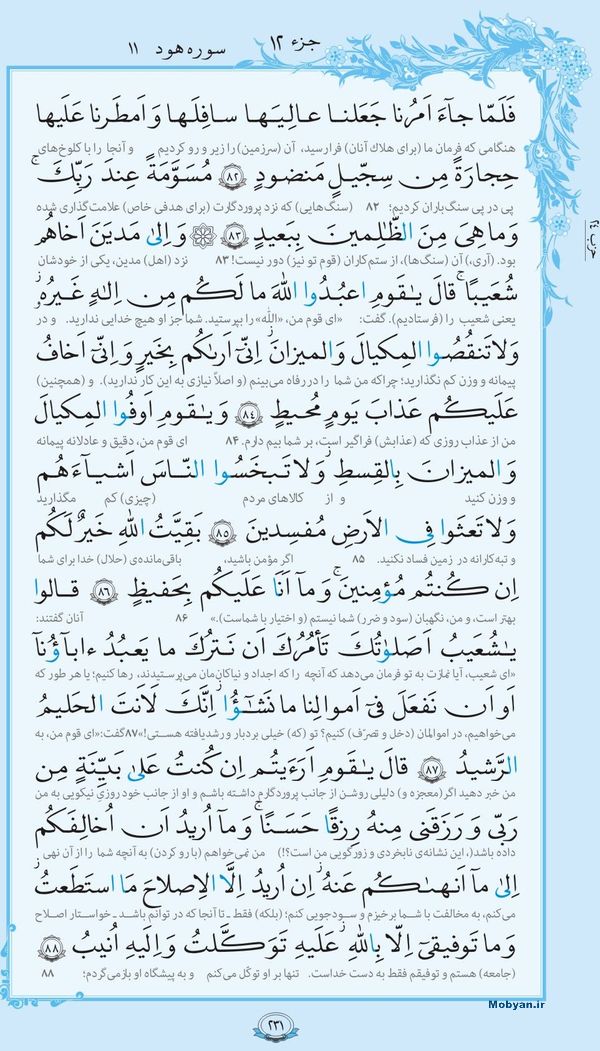 جزء ۱۲ سوره هود ۱۱
حزب ۲۴
فَلَمّا جآءَ اَمرُنا جَعَلنا عالِیَها سافِلَها وَ اَمطَرنا عَلَیها
هنگامی که فرمان ما (برای هلاک آنان) فرارسید، آن (سرزمین) را زیر و رو کردیم و آنجا را با کلوخ‌های
حِجارَةً مِن سِجّیلٍ مَنضودٍ ﴿۸۲﴾ مُسَوَّمَةً عِندَ رَبِّكَ ۚ
پی در پی سنگ‌باران کردیم؛ ۸۲ (سنگ‌هایی) که نزد پروردگارت (برای هدفی خاص) علامت‌گذاری شده
وَ ما هِیَ مِنَ الظّٰلِمینَ بِبَعیدٍ ﴿۸۳﴾ ۞ وَ اِلیٰ مَدیَنَ اَخاهُم
بود. (آری،) آن (سنگ‌ها)، از ستم‌کاران (قوم تو نیز) دور نیست! ۸۳ نزد (اهل) مدین، یکی از خودشان
شُعَیبًا ۚ قالَ یٰقَومِ اعبُدُوا اللّٰهَ ما لَكُم مِن اِلٰهٍ غَیرُهُ ۖ
یعنی شعیب را (فرستادیم). گفت: «ای قوم من، «اللّه» را بپرستید. شما جز او هیچ خدایی ندارید. و در
وَ لا تَنقُصُوا المِكیالَ وَ المیزانَ ۚ اِنّی اَرىٰكُم بِخَیرٍ وَ اِنّی اَخافُ
پیمانه و وزن کم نگذارید؛ چراکه من شما را در رفاه می‌بینم (و اصلاً نیازی به این کار ندارید). و (همچنین)
عَلَیكُم عَذابَ یَومٍ مُحیطٍ ﴿۸۴﴾ وَ یٰقَومِ اَوفُوا المِكیالَ
من از عذاب روزی که (عذابش) فراگیر است، بر شما بیم دارم. ۸۴ ای قوم من، دقیق و عادلانه پیمانه
وَ المیزانَ بِالقِسطِ ۖ وَ لا تَبخَسُوا النّاسَ اَشیآءَهُم
و وزن کنید و از کالاهای مردم (چیزی) کم مگذارید
وَ لا تَعثَوا فِی الاَرضِ مُفسِدینَ ﴿۸۵﴾ بَقِیَّتُ اللّٰهِ خَیرٌ لَكُم
و تبه‌کارانه در زمین فساد نکنید. ۸۵ اگر مؤمن باشید، باقی‌مانده‌ی (حلال) خدا برای شما
اِن كُنتُم مُؤمِنینَ ۚ وَ ما اَنَا عَلَیكُم بِحَفیظٍ ﴿۸۶﴾ قالوا
بهتر است، و من، نگهبان (سود و ضرر) شما نیستم (و اختیار با شماست).» ۸۶ آنان گفتند:
یٰشُعَیبُ اَصَلوٰتُكَ تَأمُرُكَ اَن نَترُكَ ما یَعبُدُ ءابآؤُنآ
«ای شعیب، آیا نمازت به تو فرمان می‌دهد که آنچه را که اجداد و نیاکان‌مان می‌پرستیدند، رها کنیم؛ یا هر طور که
اَو اَن نَفعَلَ فی اَموالِنا ما نَشٰٓؤُا ۖ اِنَّكَ لَاَنتَ الحَلیمُ
می‌خواهیم، در اموالمان (دخل و تصرّف) کنیم؟ تو (که) خیلی بردبار و رشدیافته هستی!» ۸۷ گفت: «ای قوم من، به
الرَّشیدُ ﴿۸۷﴾ قالَ یٰقَومِ اَرَءَیتُم اِن كُنتُ عَلیٰ بَیِّنَةٍ مِن
من خبر دهید اگر (معجزه و) دلیلی روشن از جانب پروردگارم داشته باشم و او از جانب خود روزیِ نیکویی به من
رَبّی وَ رَزَقَنی مِنهُ رِزقًا حَسَنًا ۚ وَ ما اُریدُ اَن اُخالِفَكُم
داده باشد(، این نشانه‌ی نابخردی و زورگویی من است؟!) من نمی‌خواهم (با رو کردن) به آنچه شما را از آن نهی
اِلیٰ ما اَنهىٰكُم عَنهُ ۚ اِن اُریدُ اِلَّا الاِصلاحَ مَا استَطَعتُ ۚ
می‌کنم، به مخالفت با شما برخیزم و سودجویی کنم؛ (بلکه) فقط ـ تا آنجا که در توانم باشد ـ خواستار اصلاح
وَ ما تَوفیقی اِلّا بِاللّٰهِ ۚ عَلَیهِ تَوَكَّلتُ وَ اِلَیهِ اُنیبُ ﴿۸۸﴾
(جامعه) هستم و توفیقم فقط به دست خداست. تنها بر او توکّل می‌کنم و به پیشگاه او بازمی‌گردم؛ ۸۸
Mobyan.ir
۲۳۱